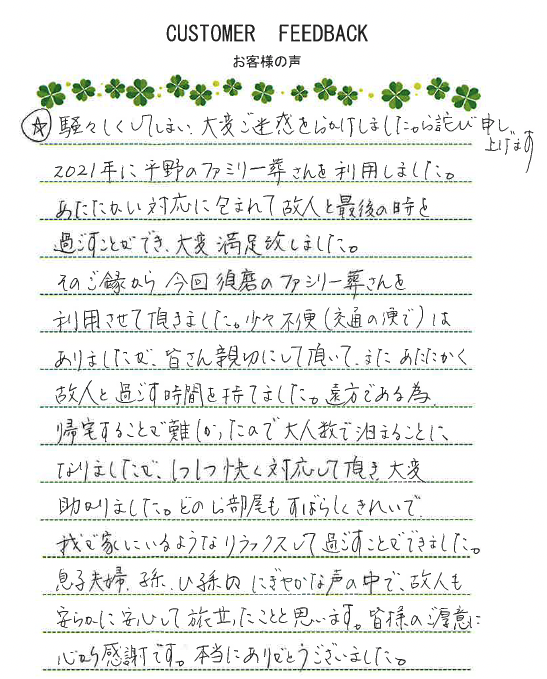 CUSTOMER FEEDBACK
お客様の声
☆ 騒々しくしてしまい、大変ご迷惑をおかけしましたお詫び申し
上げます
2021年に平野のファミリー葬さんを利用しました。
あたたかい対応に包まれて故人と最後の時を
過ごすことができ、大変満足致しました。
そのご縁から今回須磨のファミリー葬さんを
利用させて頂きました。少々不便(交通の便で)は
ありましたが、皆さん親切にして頂いて、またあたたかく
故人と過ごす時間を持てました。遠方である為、
帰宅することが難しかったので大人数で泊まることに
なりましたが、1つ1つ快く対応して頂き大変
助かりました。どのお部屋もすばらしくきれいで、
我が家にいるようなリラックスして過ごすことができました。
息子夫婦、孫、ひ孫の にぎやかな声の中で、故人も
安らかに安心して旅立ったことと思います。皆様のご厚意に
心から感謝です。本当にありがとうございました。